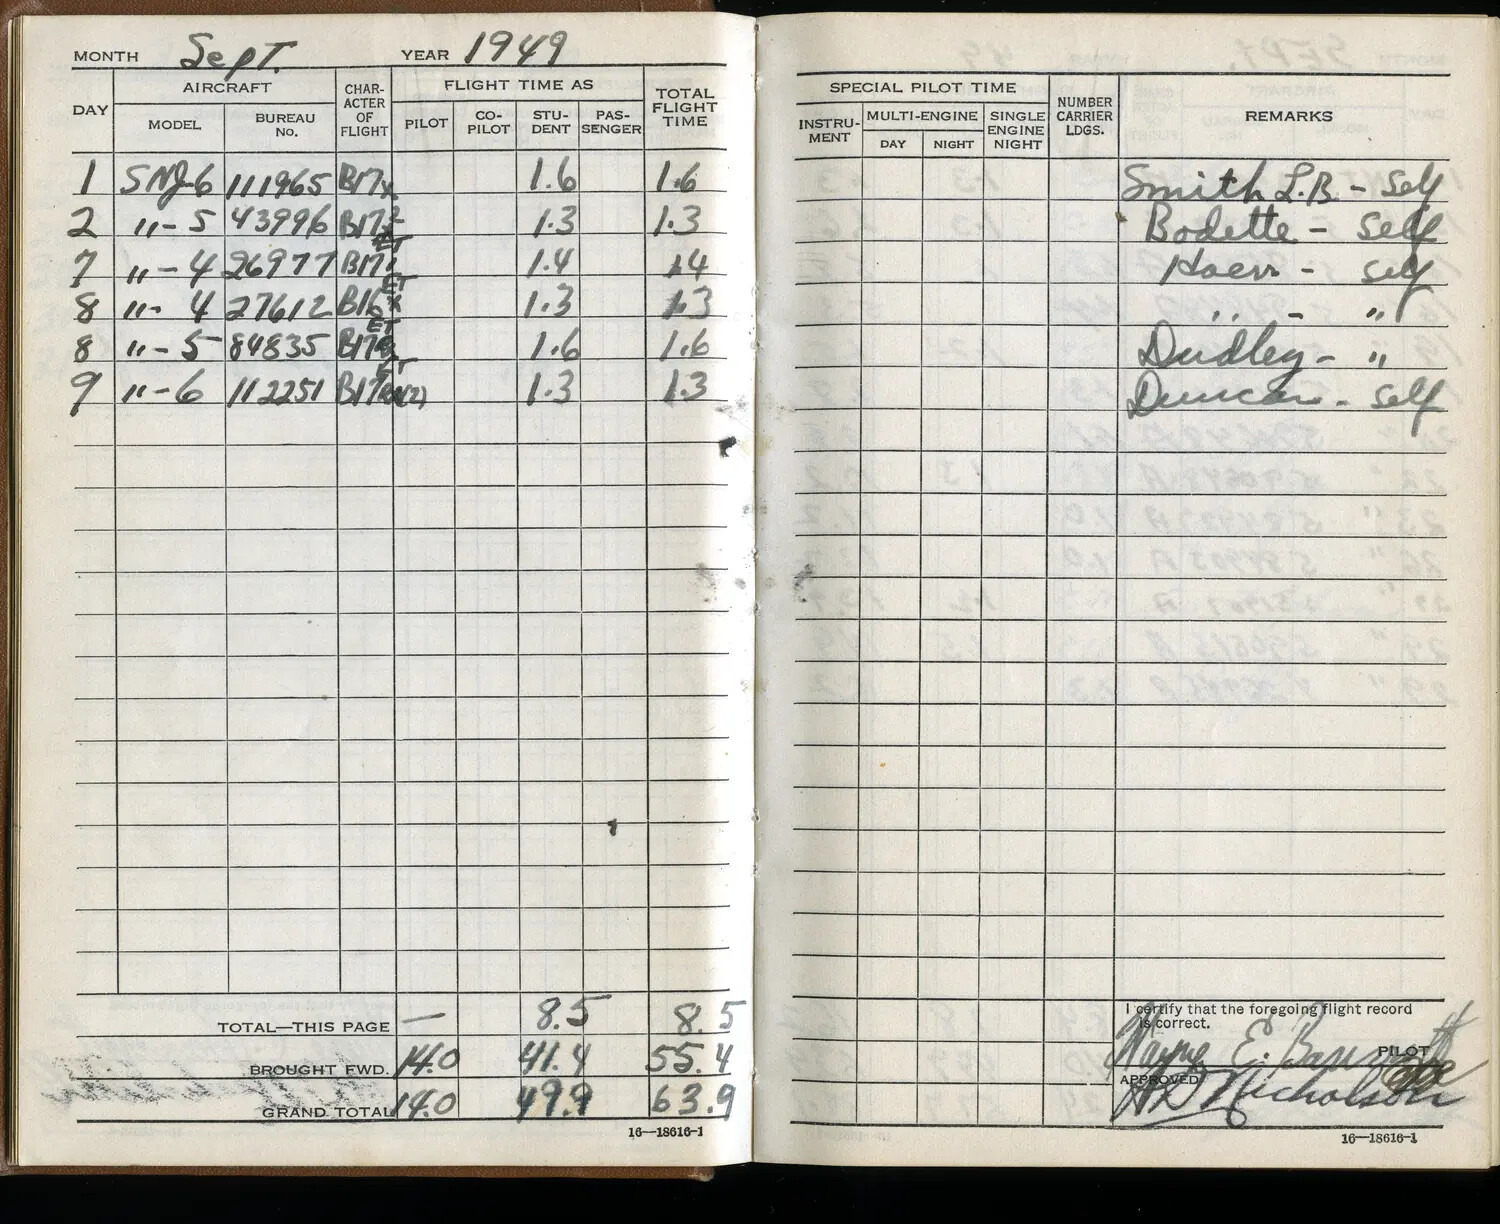 MONTH Sept. YEAR 1949
DAY AIRCRAFT CHAR-ACTER OF FLIGHT FLIGHT TIME AS TOTAL FLIGHT TIME
MODEL BUREAU No. PILOT CO-PILOT STU-DENT PAS-SENGER
1 SNJ-6 111965 B17x 1.6 1.6
2 "-5 43996 B17 1.3 1.3
7 "-4 26977 B17 1.4 1.4
8 "-4 27612 B16x 1.3 1.3
8 "-5 84835 B17 1.6 1.6
9 "-6 112251 B17 (2) 1.3 1.3
TOTAL—THIS PAGE — 8.5 8.5
BROUGHT FWD. 14.0 41.4 55.4
GRAND TOTAL 14.0 49.9 63.9
16—18616-1
SPECIAL PILOT TIME NUMBER CARRIER LDGS. REMARKS
INSTRU-MENT MULTI-ENGINE SINGLE ENGINE NIGHT
DAY NIGHT
Smith L.B. - Self
Bodette - Self
Hoerr - Self
" - "
Dudley - "
Duncan - Self
I certify that the foregoing flight record is correct.
Wayne E. PILOT
APPROVED
Nicholson
16—18616-1